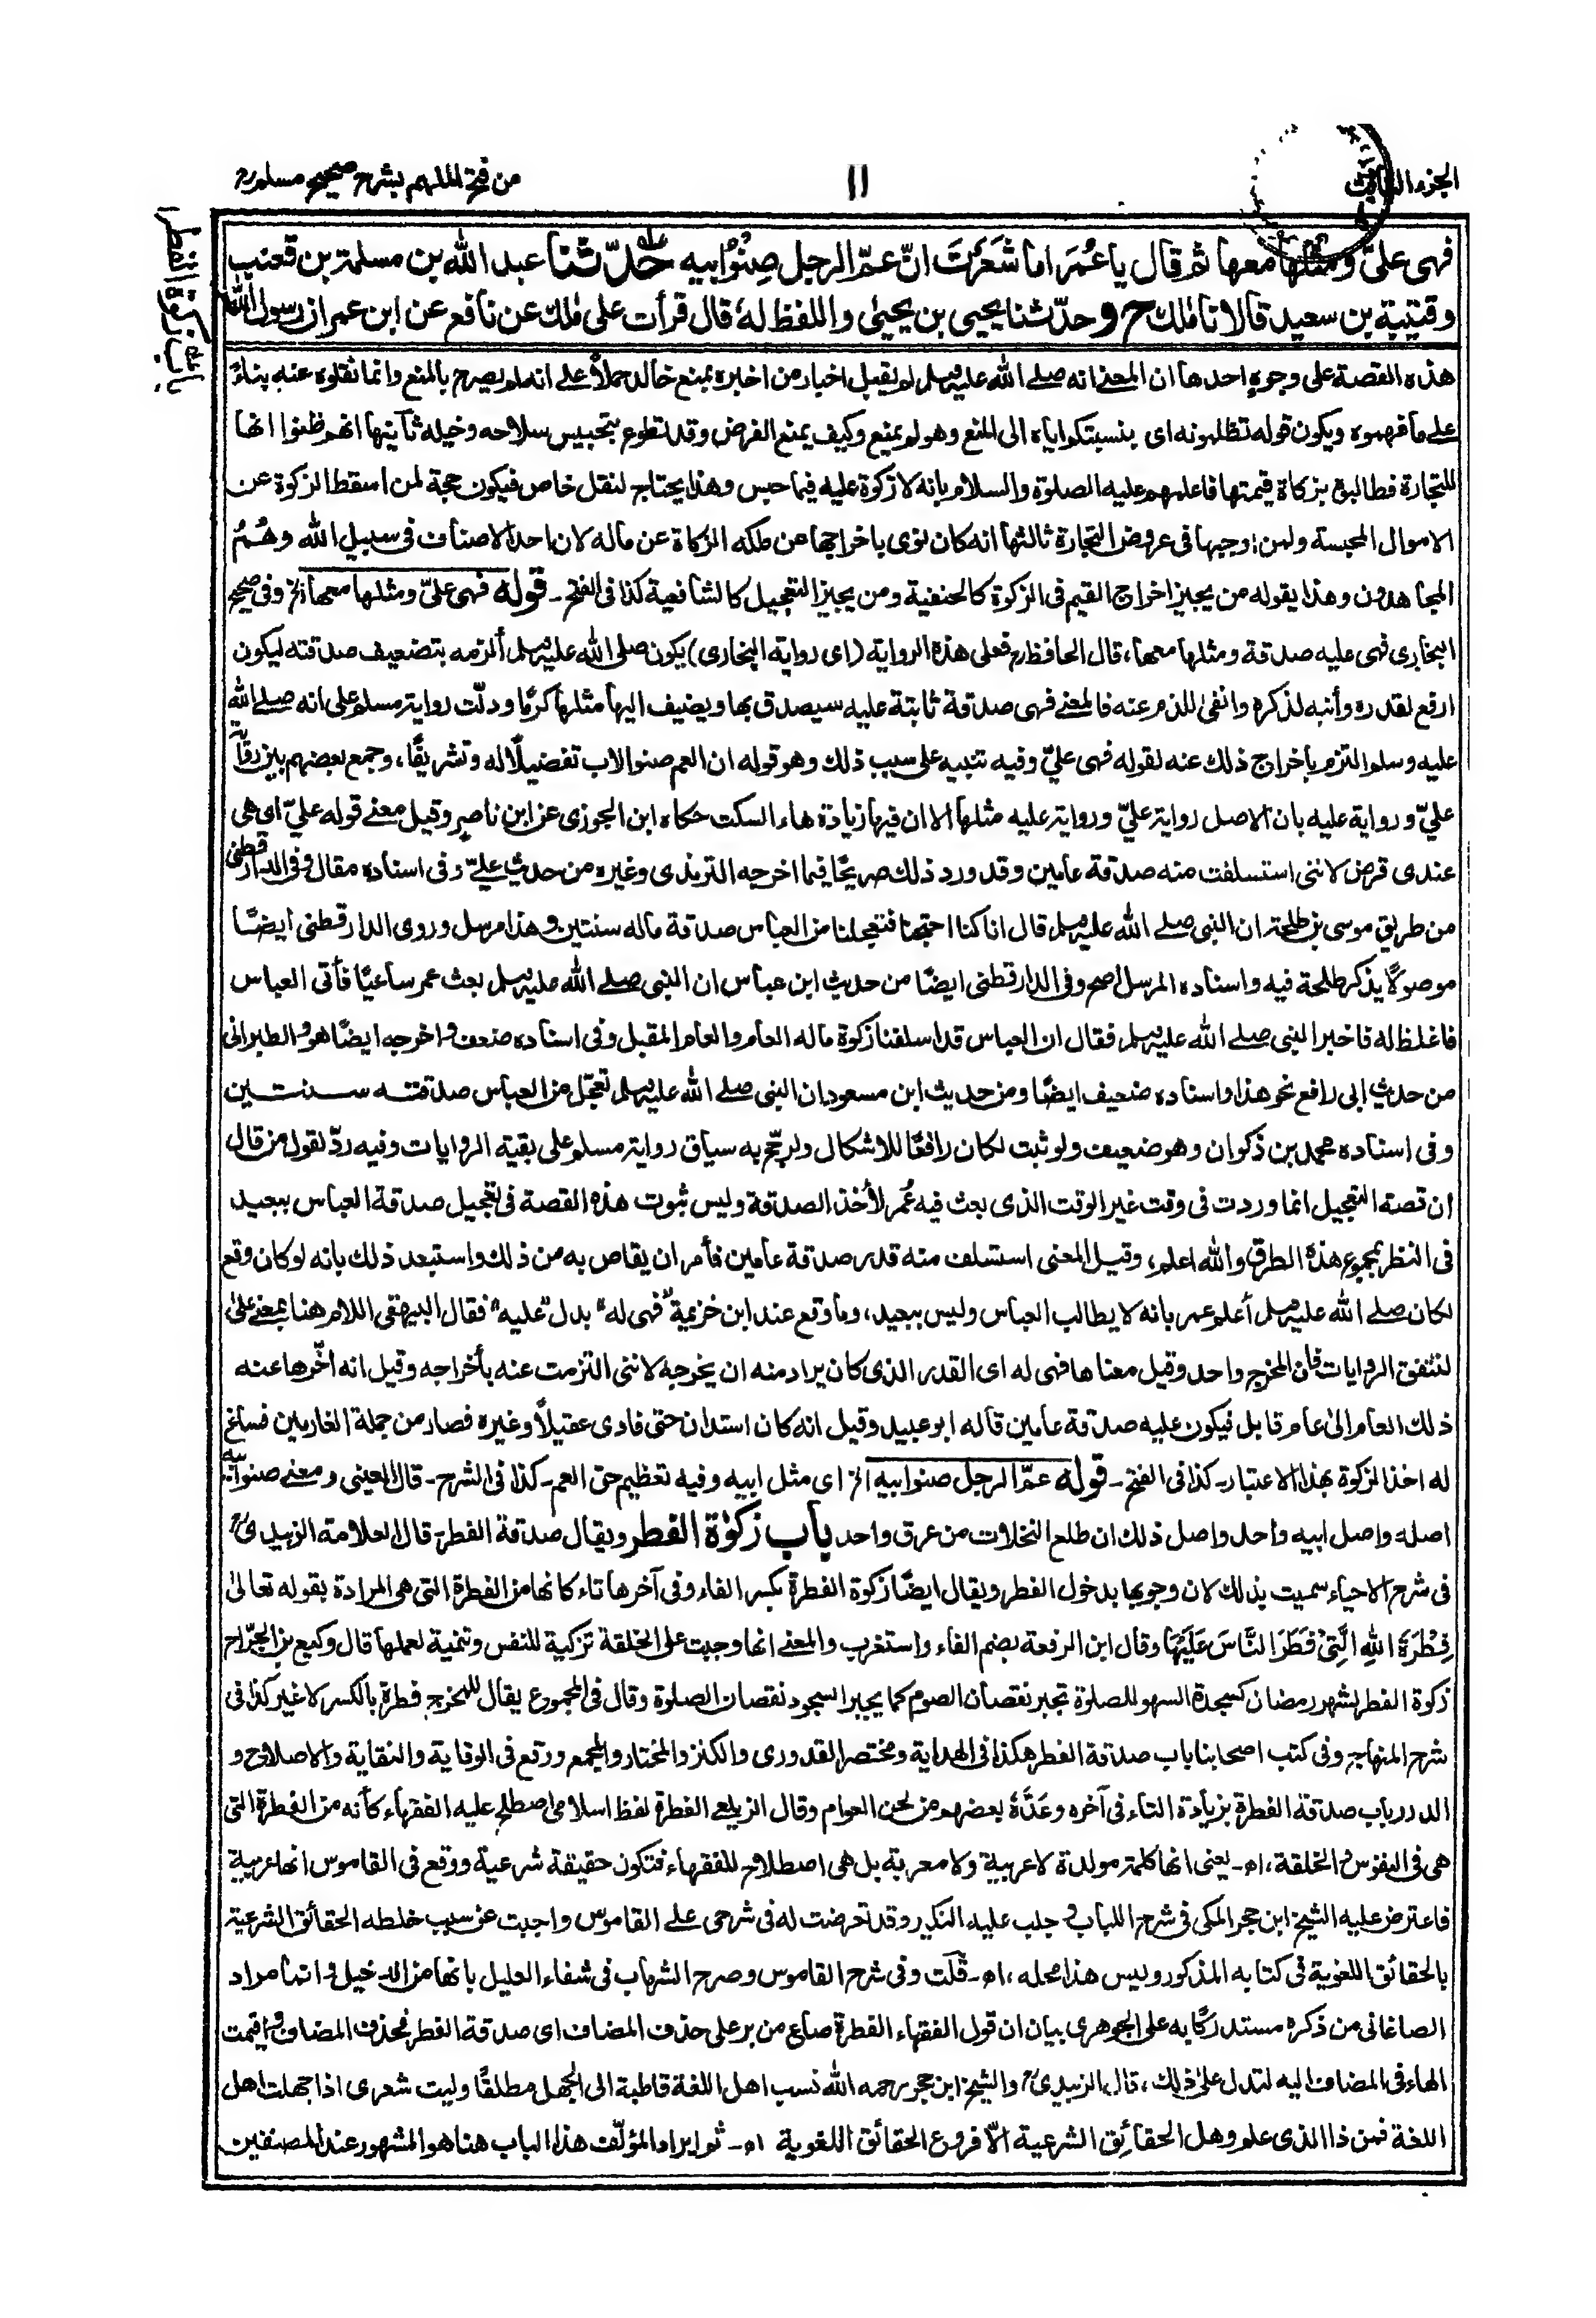 الجزء الثالث
١١
من فتح الملهم بشرح صحيح مسلم
باب زكوة الفطر
فهى علىّ ومثلها معها ثم قال يا عُمَر اما شَعَرْتَ انّ عمّ الرجل صِنْوُ ابيه حدّثنا عبد الله بن مسلمة بن قعنب
وقتيبة بن سعيد قالا نا مٰلك ح وحدّثنا يحيى بن يحيىٰ واللفظ لهٗ قال قرأت على مٰلك عن نافع عن ابن عمر ان رسول الله
هذه القصة على وجوه احدها ان المعنے انه صلے الله عليه وسلم لم يقبل اخبار من اخبره بمنع خالد حملاً علے انه لم يصرح بالمنع وانما نقلوه عنه بناءً
علے ما فهموه ويكون قوله تظلمونه اى بنسبتكم اياه الى المنع وهو لم يمنع وكيف يمنع الفرض وقد تطوع بتحبيس سلاحه وخيله ثانيها انهم ظنوا انها
للتجارة فطالبوه بزكاة قيمتها فاعلمهم عليه الصلوة والسلام بانه لا زكوة عليه فيما حبس وهذا يحتاج لنقل خاص فيكون حجة لمن اسقط الزكوة عن
الاموال المحبسة ولمن اوجبها فى عروض التجارة ثالثها انه كان نوى باخراجها عن ملكه الزكاة عن ماله لان احد الاصناف فى سبيل الله وهُمُ
المجاهدون وهذا يقوله من يجيز اخراج القيم فى الزكوة كالحنفية ومن يجيز التعجيل كالشافعية كذا فى الفتح۔ قوله فهى علىّ ومثلها معها الخ وفى صحيح
البخارى فهى عليه صدقة ومثلها معها، قال الحافظ فعلى هذه الرواية (اى رواية البخارى) يكون صلى الله عليه وسلم ألزمه بتضعيف صدقته ليكون
ارفع لقدره وأنبه لذكره وانفىٰ للذم عنه فالمعنے فهى صدقة ثابتة عليه سيصدق بها ويضيف اليها مثلها كرمًا ودلّت رواية مسلم على انه صلے الله
عليه وسلم التزم باخراج ذلك عنه لقوله فهى علىّ وفيه تنبيه على سبب ذلك وهو قوله ان العم صنو الاب تفضيلًا له وتشريفًا، وجمع بعضهم بين رواية
علىّ ورواية عليه بان الاصل رواية علىّ ورواية عليه مثلها الا ان فيها زيادة هاء السكت حكاه ابن الجوزى عن ابن ناصر وقيل معنے قوله علىّ اى هى
عندى قرض لاننى استسلفت منه صدقة عامين وقد ورد ذلك صريحًا فيما اخرجه الترمذى وغيره من حديث علىّ وفى اسناده مقال وفى الدارقطنى
من طريق موسى بن طلحة ان النبى صلے الله عليه وسلم قال انا كنا احتجنا فتعجلنا من العباس صدقة ماله سنتين وهذا مرسل وروى الدارقطنى ايضًا
موصولًا يذكر طلحة فيه واسناده المرسل اصح وفى الدارقطنى ايضًا من حديث ابن عباس ان النبى صلے الله عليه وسلم بعث عمر ساعيًا فأتى العباس
فاغلظ له فاخبر النبى صلے الله عليه وسلم فقال ان العباس قد اسلفنا زكوة ماله العام والعام المقبل وفى اسناده ضعف واخرجه ايضًا هو والطبرانى
من حديث ابى رافع نحو هذا واسناده ضعيف ايضًا ومن حديث ابن مسعود ان النبى صلے الله عليه وسلم تعجّل من العباس صدقته سنتين
وفى اسناده محمد بن ذكوان وهو ضعيف ولو ثبت لكان رافعًا للاشكال ولرجّح به سياق رواية مسلم على بقية الروايات وفيه ردّ لقول من قال
ان قصة التعجيل انما وردت فى وقت غير الوقت الذى بعث فيه عُمر لأخذ الصدقة وليس ثبوت هذه القصة فى تعجيل صدقة العباس ببعيد
فى النظر بمجموع هذه الطرق والله اعلم، وقيل المعنى استسلف منه قدر صدقة عامين فأمر ان يقاص به من ذلك واستبعد ذلك بانه لو كان وقع
لكان صلے الله عليه وسلم أعلم عمر بانه لا يطالب العباس وليس ببعيد، وما وقع عند ابن خزيمة "فهى له" بدل "عليه" فقال البيهقى اللام هنا بمعنے علىٰ
لتتفق الروايات فان المخرج واحد وقيل معناها فهى له اى القدر الذى كان يراد منه ان يخرجه لاننى التزمت عنه بأخراجه وقيل انه اخّرها عنه
ذلك العام الىٰ عام قابل فيكون عليه صدقة عامين قاله ابو عبيد وقيل انه كان استدان حتى فادى عقيلًا وغيره فصار من جملة الغارمين فساغ
له اخذ الزكوة بهذا الاعتبار۔ كذا فى الفتح۔ قوله عمّ الرجل صنو ابيه الخ اى مثل ابيه وفيه تعظيم حق العم۔ كذا فى الشرح۔ قال العينى ومعنے صنو ابيه
اصله واصل ابيه واحد واصل ذلك ان طلع النخلات من عرق واحد باب زكوٰة الفطر ويقال صدقة الفطر، قال العلامة الزبيدى
فى شرح الاحياء سميت بذلك لان وجوبها بدخول الفطر ويقال ايضًا زكوة الفطرة بكسر الفاء وفى آخرها تاء كانها من الفطرة التى هى المرادة بقوله تعالىٰ
فِطْرَةَ اللهِ الَّتِىْ فَطَرَ النَّاسَ عَلَيْهَا وقال ابن الرفعة بضم الفاء واستغرب والمعنے انها وجبت على الخلقة تزكية للنفس وتنمية لعملها قال وكيع بن الجرّاح
زكوة الفطر لشهر رمضان كسجدة السهو للصلوة تجبر نقصان الصوم كما يجبر السجود نقصان الصلوة وقال فى المجموع يقال للمخرج فطرة بالكسر لا غير كذا فى
شرح المنهاج وفى كتب اصحابنا باب صدقة الفطر هكذا فى الهداية ومختصر القدورى والكنز والمختار والمجمع ووقع فى الوقاية والنقاية والاصلاح و
الدرر باب صدقة الفطرة بزيادة التاء فى آخره وعَدَّهٗ بعضهم من لحن العوام وقال الزيلعى الفطرة لفظ اسلامى اصطلح عليه الفقهاء كأنه من الفطرة التى
هى فى النفوس والخلقة، اھ۔ يعنى انها كلمة مولدة لا عربية ولا معربة بل هى اصطلاح للفقهاء فتكون حقيقة شرعية ووقع فى القاموس انها عربية
فاعترض عليه الشيخ ابن حجر المكى فى شرح اللباب وجلب عليه النكير وقد تعرضت له فى شرحى علے القاموس واجبت عن سبب خلطه الحقائق الشرعية
بالحقائق اللغوية فى كتابه المذكور وليس هذا محله، اھ۔ قلت وفى شرح القاموس وصرح الشهاب فى شفاء العليل بانها من الدخيل وانما مراد
الصاغانى من ذكره مستدركًا به على الجوهرى بيان ان قول الفقهاء الفطرة صاع من بر على حذف المضاف اى صدقة الفطر فحذف المضاف واقيمت
الهاء فى المضاف اليه لتدل علىٰ ذلك، قال الزبيدى والشيخ ابن حجر رحمه الله نسب اهل اللغة قاطبة الى الجهل مطلقًا وليت شعرى اذا جهلت اهل
اللغة فمن ذا الذى علم وهل الحقائق الشرعية الّا فروع الحقائق اللغوية اھ۔ ثم ايراد المؤلّف هذا الباب هنا هو المشهور عند المصنفين